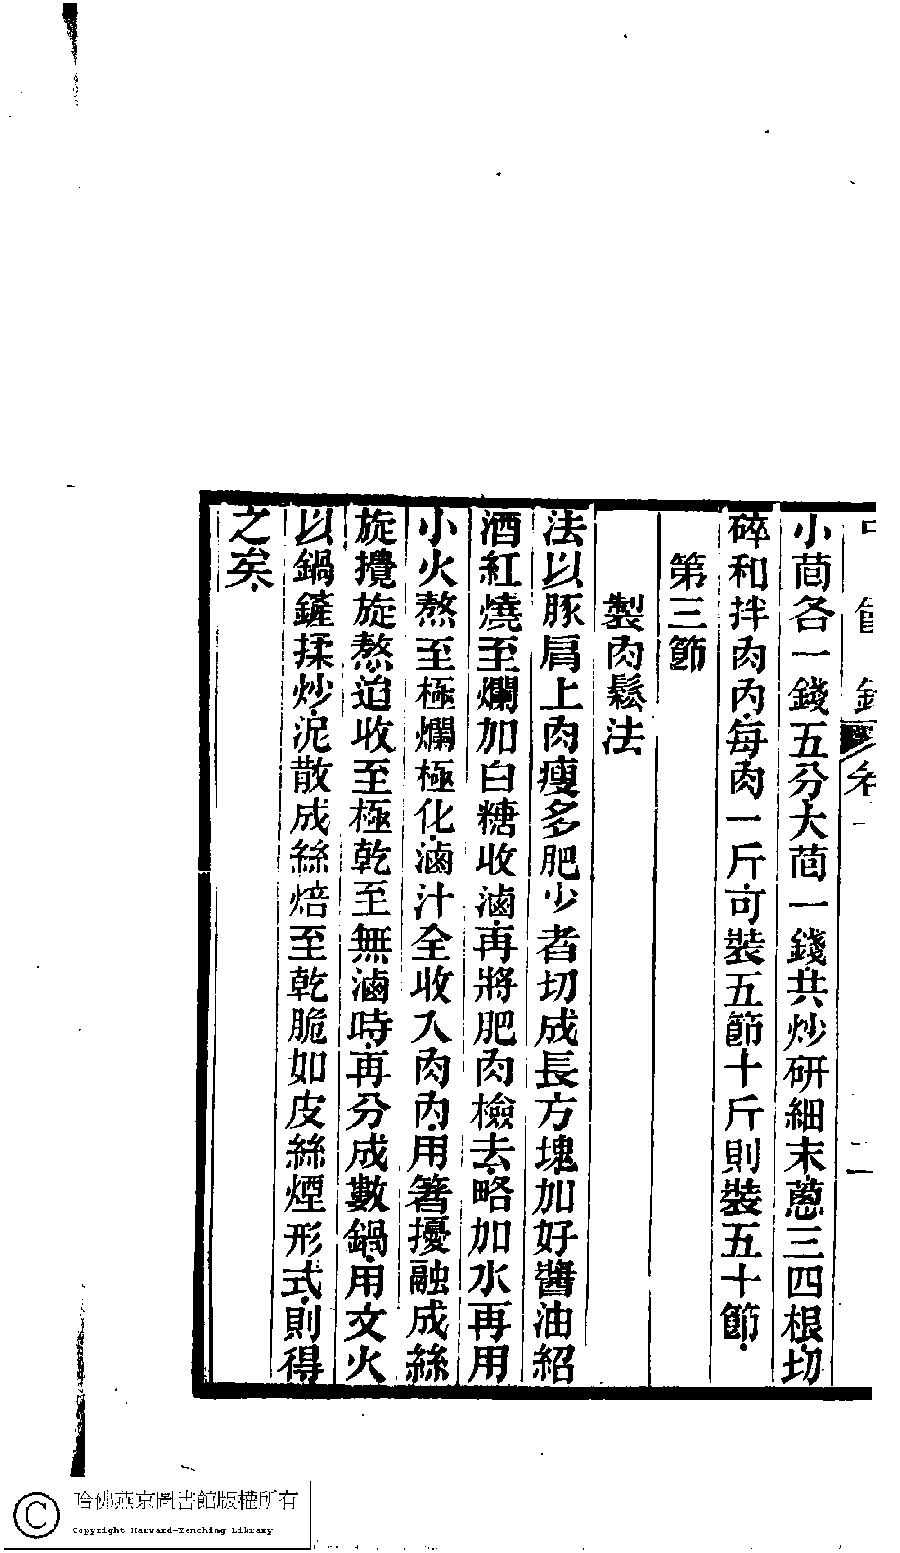 小茴各一錢五分大茴一錢共炒研細末蔥三四根切
碎和拌肉內每肉一斤可裝五節十斤則裝五十節
第三節
製肉鬆法
法以豚肩上肉瘦多肥少者切成長方塊加好醬油紹
酒紅燒至爛加白糖收滷再將肥肉檢去略加水再用
小火熬至極爛極化滷汁全收入肉內用箸擾融成絲
旋攪旋熬迨收至極乾至無滷時再分成數鍋用文火
以鍋鏟揉炒泥散成絲焙至乾脆如皮絲煙形式則得
之矣
哈佛燕京圖書館版權所有
Copyright Harvard-Yenching Library